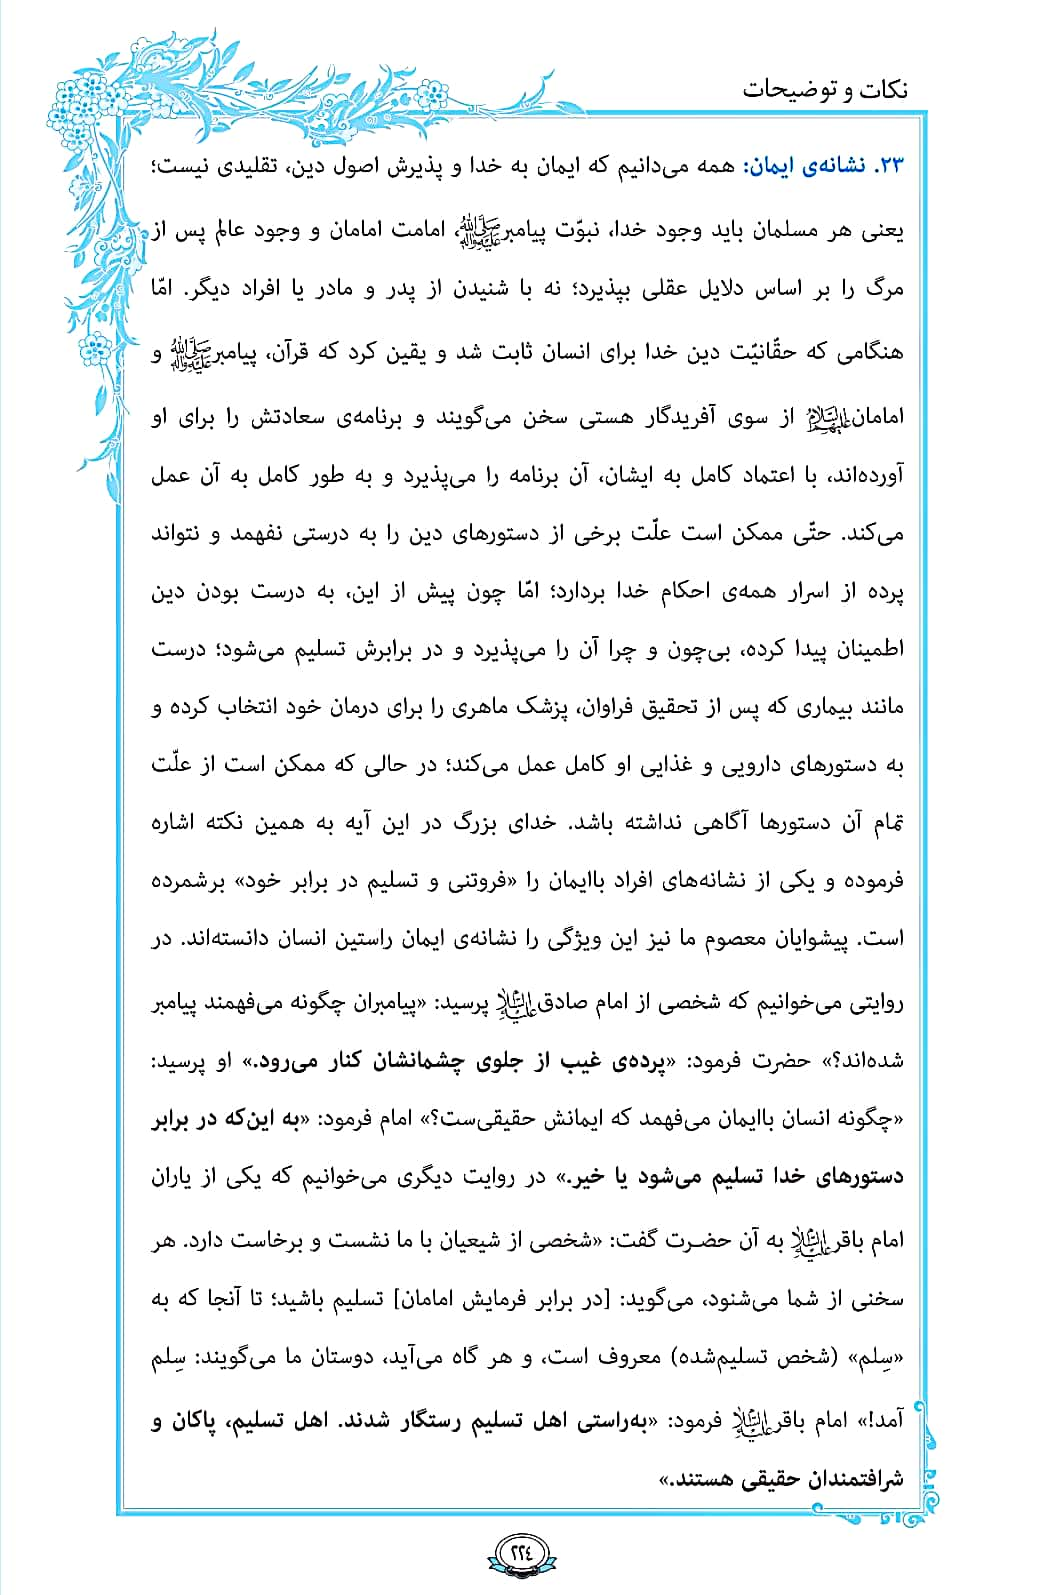 نکات و توضیحات
۲۳. نشانه‌ی ایمان: همه می‌دانیم که ایمان به خدا و پذیرش اصول دین، تقلیدی نیست؛
یعنی هر مسلمان باید وجود خدا، نبوّت پیامبرﷺ، امامت امامان و وجود عالم پس از
مرگ را بر اساس دلایل عقلی بپذیرد؛ نه با شنیدن از پدر و مادر یا افراد دیگر. امّا
هنگامی که حقّانیّت دین خدا برای انسان ثابت شد و یقین کرد که قرآن، پیامبرﷺ و
امامان علیهم السلام از سوی آفریدگار هستی سخن می‌گویند و برنامه‌ی سعادتش را برای او
آورده‌اند، با اعتماد کامل به ایشان، آن برنامه را می‌پذیرد و به طور کامل به آن عمل
می‌کند. حتّی ممکن است علّت برخی از دستورهای دین را به درستی نفهمد و نتواند
پرده از اسرار همه‌ی احکام خدا بردارد؛ امّا چون پیش از این، به درست بودن دین
اطمینان پیدا کرده، بی‌چون و چرا آن را می‌پذیرد و در برابرش تسلیم می‌شود؛ درست
مانند بیماری که پس از تحقیق فراوان، پزشک ماهری را برای درمان خود انتخاب کرده و
به دستورهای دارویی و غذایی او کامل عمل می‌کند؛ در حالی که ممکن است از علّت
تمام آن دستورها آگاهی نداشته باشد. خدای بزرگ در این آیه به همین نکته اشاره
فرموده و یکی از نشانه‌های افراد باایمان را «فروتنی و تسلیم در برابر خود» برشمرده
است. پیشوایان معصوم ما نیز این ویژگی را نشانه‌ی ایمان راستین انسان دانسته‌اند. در
روایتی می‌خوانیم که شخصی از امام صادق علیه السلام پرسید: «پیامبران چگونه می‌فهمند پیامبر
شده‌اند؟» حضرت فرمود: «پرده‌ی غیب از جلوی چشمانشان کنار می‌رود.» او پرسید:
«چگونه انسان باایمان می‌فهمد که ایمانش حقیقی‌ست؟» امام فرمود: «به این‌که در برابر
دستورهای خدا تسلیم می‌شود یا خیر.» در روایت دیگری می‌خوانیم که یکی از یاران
امام باقر علیه السلام به آن حضرت گفت: «شخصی از شیعیان با ما نشست و برخاست دارد. هر
سخنی از شما می‌شنود، می‌گوید: [در برابر فرمایش امامان] تسلیم باشید؛ تا آنجا که به
«سِلم» (شخص تسلیم‌شده) معروف است، و هر گاه می‌آید، دوستان ما می‌گویند: سِلم
آمد!» امام باقر علیه السلام فرمود: «به‌راستی اهل تسلیم رستگار شدند. اهل تسلیم، پاکان و
شرافتمندان حقیقی هستند.»
۲۲٤